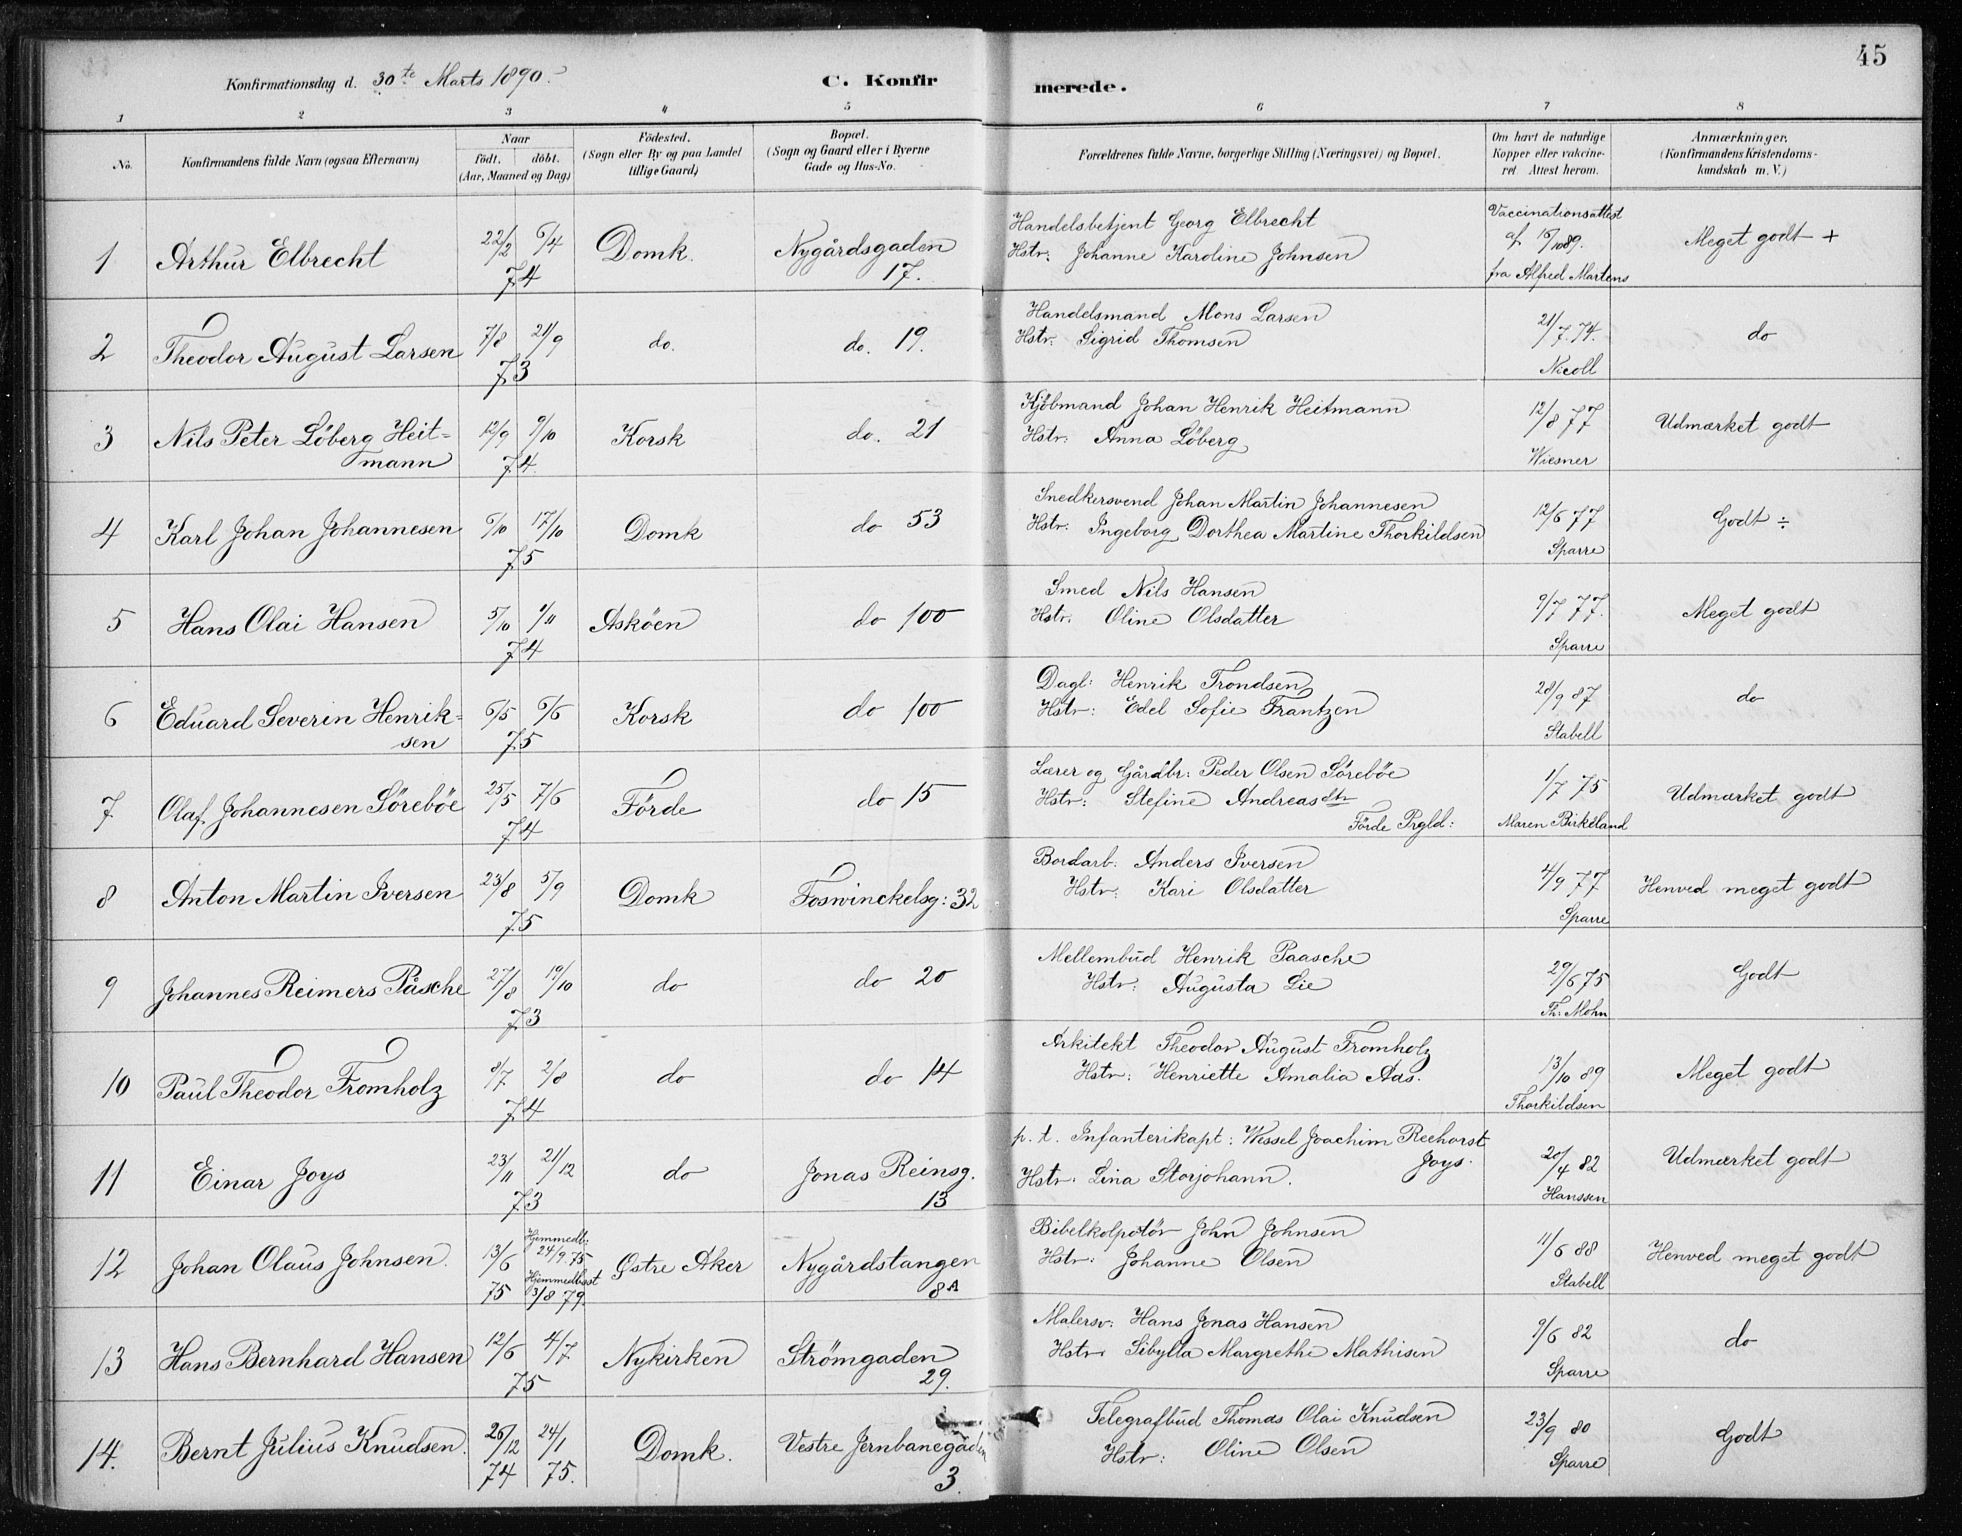 45
Konfirmationsdag d. 30te Marts 1890.
C. Konfir
merede.
1 2 3 4 5 6 7 8
No.
Konfirmandens fulde Navn (ogsaa Efternavn)
Naar
födt. döbt.
(Aar, Maaned og Dag)
Födested.
(Sogn eller By og paa Landet
tillige Gaard)
Bopæl.
(Sogn og Gaard eller i Byerne
Gade og Hus-No.
Forældrenes fulde Navne, borgerlige Stilling (Næringsvei) og Bopæl.
Om havt de naturlige
Kopper eller vakcine-
ret. Attest herom.
Anmærkninger,
(Konfirmandens Kristendoms-
kundskab m. V.)
1 Arthur Elbrecht 22/2 6/4 74 Domk. Nygårdsgaden 17.
Handelsbetjent Georg Elbrecht
Hstr: Johanne Karoline Johnsen
Vaccinationsattest
af 15/10 89.
fra Alfred Martens
Meget godt +
2 Theodor August Larsen 7/8 21/9 73 do. do. 19.
Handelsmand Mons Larsen
Hstr: Sigrid Thomsen
21/7 74.
Nicoll
do
3 Nils Peter Löberg Heit-
mann 12/9 9/10 74 Korsk do. 21
Kjöbmand Johan Henrik Heitmann
Hstr: Anna Löberg
12/8 77
Wiesner
Udmærket godt
4 Karl Johan Johannesen 6/10 17/10 75 Domk do 53
Snedkersvend Johan Martin Johannesen
Hstr: Ingeborg Dorthea Martine Thorkildsen
12/6 77
Sparre
Godt ÷
5 Hans Olai Hansen 5/10 1/11 74 Asköen do 100
Smed Nils Hansen
Hstr. Oline Olsdatter
9/7 77.
Sparre
Meget godt
6 Eduard Severin Henrik-
sen 6/5 6/6 75 Korsk do 100
Dagl: Henrik Trondsen
Hstr: Edel Sofie Frantzen
28/9 87
Stabell
do
7 Olaf Johannesen Söreböe 25/5 7/6 74 Förde do 15
Lærer og Gårdbr: Peder Olsen Söreböe
Hstr: Stefine Andreasdtr
Förde Prgld:
1/7 75
Maren Birkeland
Udmærket godt
8 Anton Martin Iversen 23/8 5/9 75 Domk Foswinckelsg: 32
Bordarb: Anders Iversen
Hstr: Kari Olsdatter
4/9 77
Sparre
Henved meget godt
9 Johannes Reimers Påsche 27/8 19/10 73 do do 20
Mellembud Henrik Paasche
Hstr: Augusta Lie
29/6 75
Th: Mohn
Godt
10 Paul Theodor Fromholz 8/7 2/8 74 do do 14
Arkitekt Theodor August Fromholz
Hstr: Henriette Amalia Aas.
13/10 89
Thorkildsen
Meget godt
11 Einar Joys 23/11 21/12 73 do Jonas Reinsg. 13
p. t. Infanterikapt: Wessel Joachim Reehorst
Joys.
Hstr: Lina Storjohann.
20/4 82
Hanssen
Udmærket godt
12 Johan Olaus Johnsen. 13/6 75 Hjemmedb: 24/9 75 Hjemmedbast 3/8 79. Østre Aker Nygårdstangen 8A
Bibelkolpotör John Johnsen
Hstr: Johanne Olsen
11/6 88
Stabell
Henved meget godt
13 Hans Bernhard Hansen 12/6 4/7 75 Nykirken Strömgaden 29.
Malersv: Hans Jonas Hansen
Hstr: Sibylla Margrethe Mathisen
9/6 82
Sparre
do
14. Bernt Julius Knudsen. 26/12 74 24/1 75. Domk. Vestre Jernbanegaden 3.
Telegrafbud Thomas Olai Knudsen
Hstr: Oline Olsen
23/9 80
Sparre
Godt